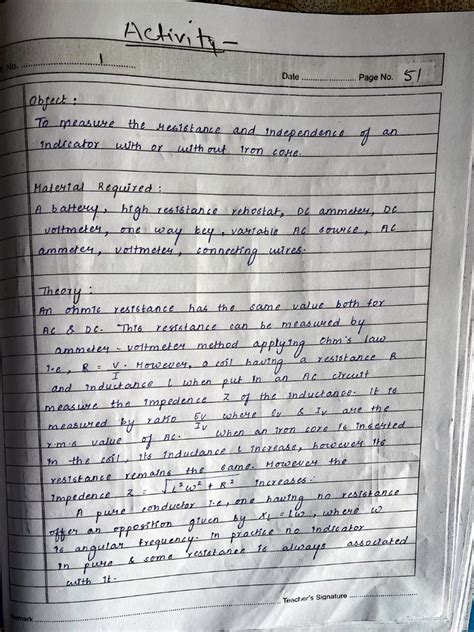 Activity -
No. 1
Date Page No. 51
Object :
To measure the resistance and independence of an
indicator with or without iron core.
Material Required :
A battery, high resistance rehostat, DC ammeter, DC
voltmeter, one way key, variable AC source, AC
ammeter, voltmeter, connecting wires.
Theory :
An ohmic resistance has the same value both for
AC & DC. This resistance can be measured by
ammeter - voltmeter method applying Ohm's law
i.e., R = V/I. However, a coil having a resistance R
and inductance L when put in an AC circuit
measure the impedence Z of the inductance. It is
measured by ratio Ev/Iv where Ev & Iv are the
r.m.s value of AC. When an iron core is inserted
in the coil, its inductance L increase, however its
resistance remains the same. However the
impedence Z = √L²W² + R² increases.
A pure conductor i.e., one having no resistance
offer an opposition given by XL = LW, where W
is angular frequency. In practice no indicator
in pure & some resistance is always associated
with it.
Teacher's Signature
Remark